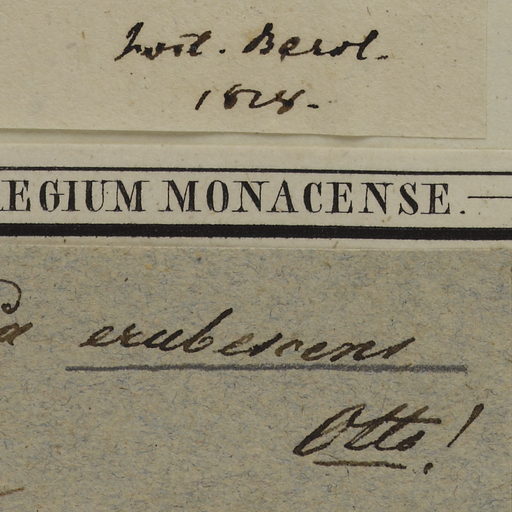 hort. Berol.
1828.
REGIUM MONACENSE.
erubescens
Otto!